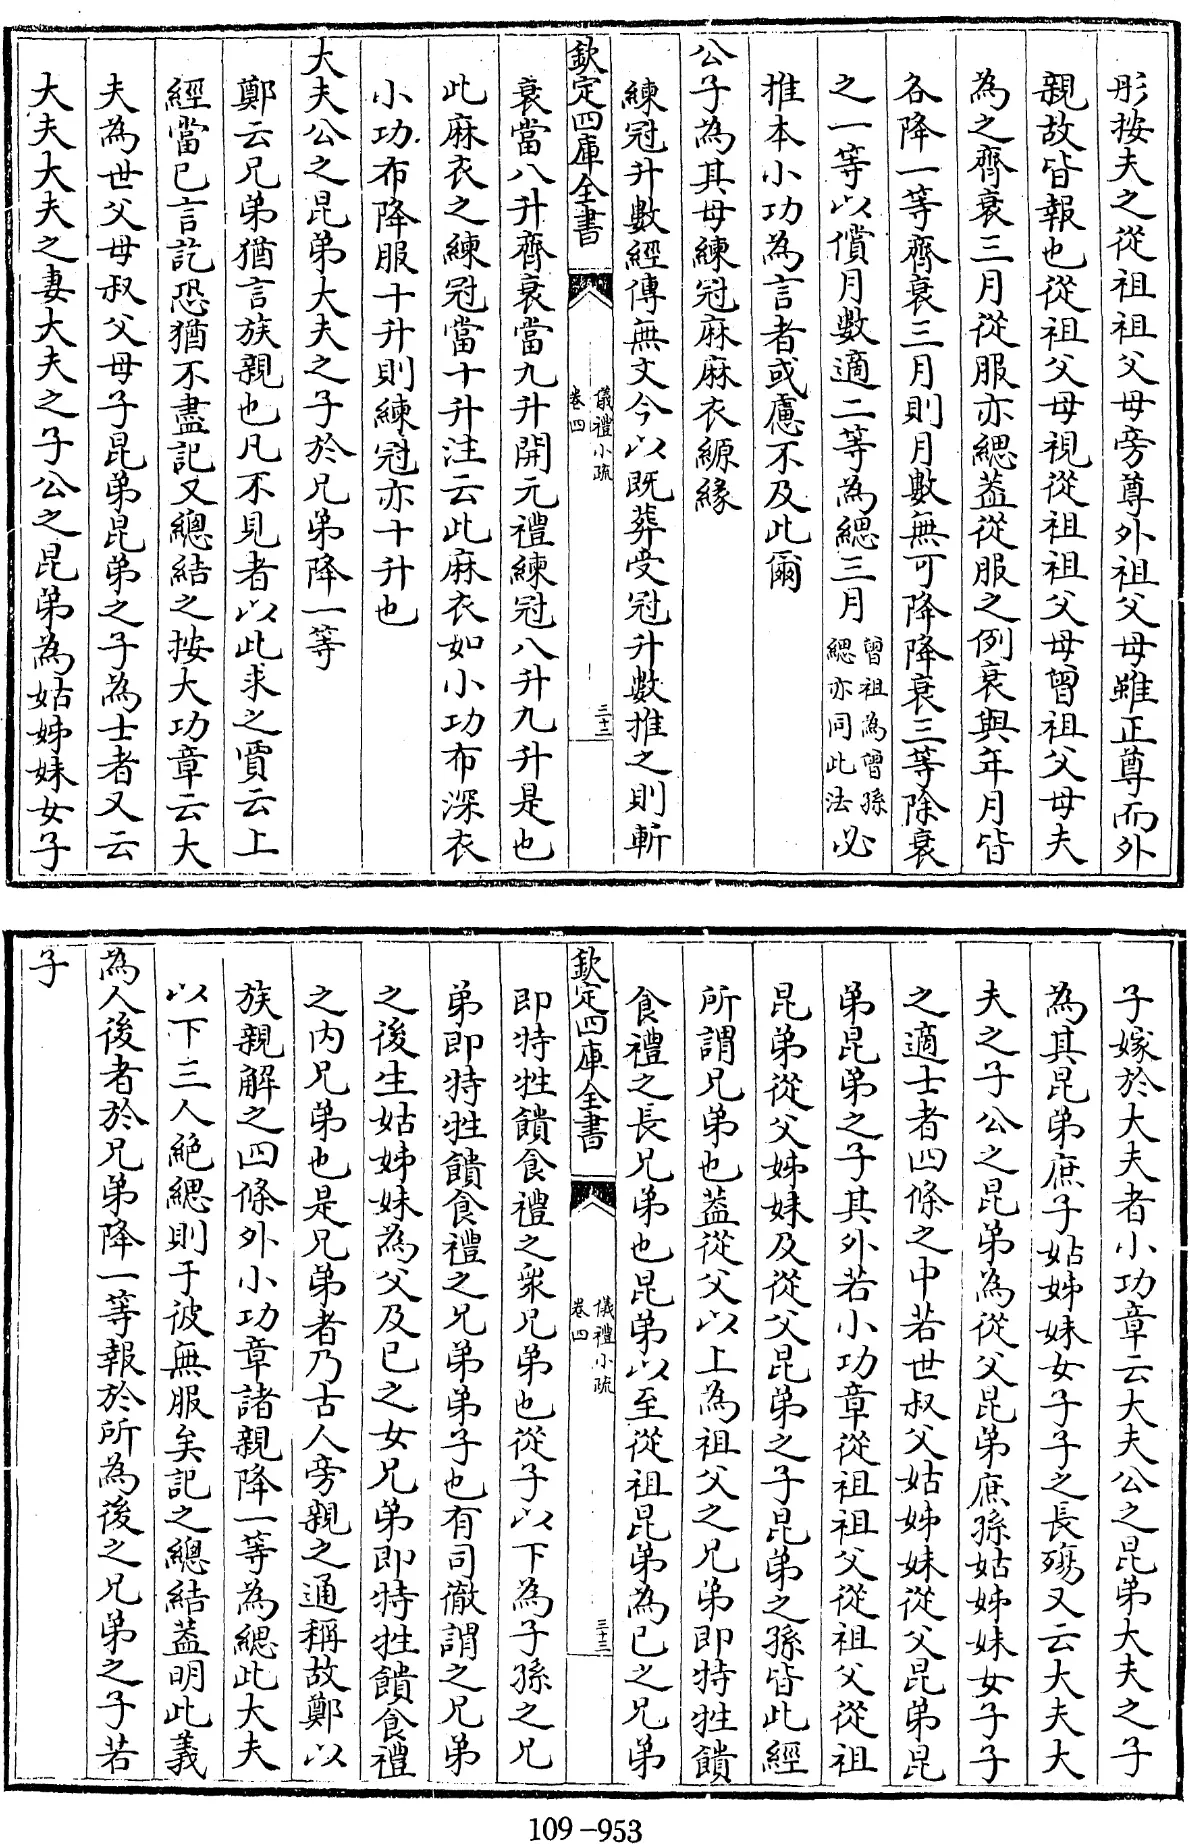 彤按夫之從祖祖父母旁尊外祖父母雖正尊而外
親故皆報也從祖父母視從祖祖父母曽祖父母夫
為之齊衰三月從服亦緦葢從服之例衰與年月皆
各降一等齊衰三月則月數無可降降衰三等除衰
之一等以償月數適二等為緦三月曽祖為曽孫緦亦同此法必
推本小功為言者或慮不及此爾
公子為其母練冠麻麻衣縓緣
練冠升數經傳無文今以既葬受冠升數推之則斬
欽定四庫全書
儀禮小疏
卷四
三十二
衰當八升齊衰當九升開元禮練冠八升九升是也
此麻衣之練冠當十升注云此麻衣如小功布深衣
小功布降服十升則練冠亦十升也
大夫公之昆弟大夫之子於兄弟降一等
鄭云兄弟猶言族親也凡不見者以此求之賈云上
經當已言訖恐猶不盡記又總結之按大功章云大
夫為世父母叔父母子昆弟昆弟之子為士者又云
大夫大夫之妻大夫之子公之昆弟為姑姊妹女子
子嫁於大夫者小功章云大夫公之昆弟大夫之子
為其昆弟庶子姑姊妹女子子之長殤又云大夫大
夫之子公之昆弟為從父昆弟庶孫姑姊妹女子子
之適士者四條之中若世叔父姑姊妹從父昆弟昆
弟昆弟之子其外若小功章從祖祖父從祖父從祖
昆弟從父姊妹及從父昆弟之子昆弟之孫皆此經
所謂兄弟也葢從父以上為祖父之兄弟即特牲饋
食禮之長兄弟也昆弟以至從祖昆弟為已之兄弟
欽定四庫全書
儀禮小疏
卷四
三十三
即特牲饋食禮之衆兄弟也從子以下為子孫之兄
弟即特牲饋食禮之兄弟弟子也有司徹謂之兄弟
之後生姑姊妹為父及已之女兄弟即特牲饋食禮
之内兄弟也是兄弟者乃古人旁親之通稱故鄭以
族親解之四條外小功章諸親降一等為緦此大夫
以下三人絶緦則于彼無服矣記之總結葢明此義
為人後者於兄弟降一等報於所為後之兄弟之子若
子
109-953